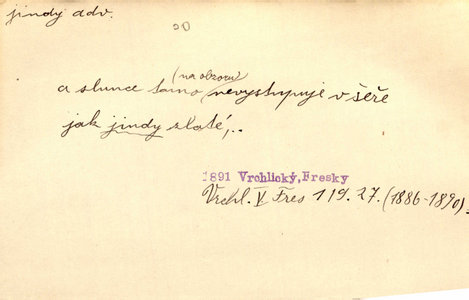 jindy adv.
(na obzoru)
a slunce tamo nevystupuje v šeře
jak jindy zlaté,..
1891 Vrchlický, Fresky
Vrchl. V Fres 119. 27. (1886-1890).